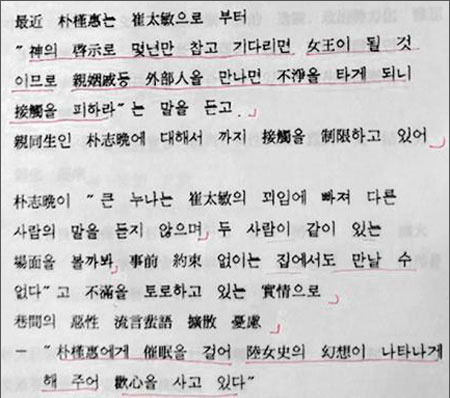 最近 朴槿惠는 崔太敏으로 부터
"神의 啓示로 몇년만 참고 기다리면 女王이 될 것
이므로 親姻戚등 外部人을 만나면 不淨을 타게 되니
接觸을 피하라"는 말을 듣고.
親同生인 朴志晩에 대해서 까지 接觸을 制限하고 있어
朴志晩이 "큰 누나는 崔太敏의 꾀임에 빠져 다른
사람의 말을 듣지 않으며 두 사람이 같이 있는
場面을 볼까봐 事前 約束 없이는 집에서도 만날 수
없다"고 不滿을 토로하고 있는 實情으로
巷間의 惡性 流言蜚語 擴散 憂慮
- "朴槿惠에게 催眠을 걸어 陸女史의 幻想이 나타나게
해 주어 歡心을 사고 있다"